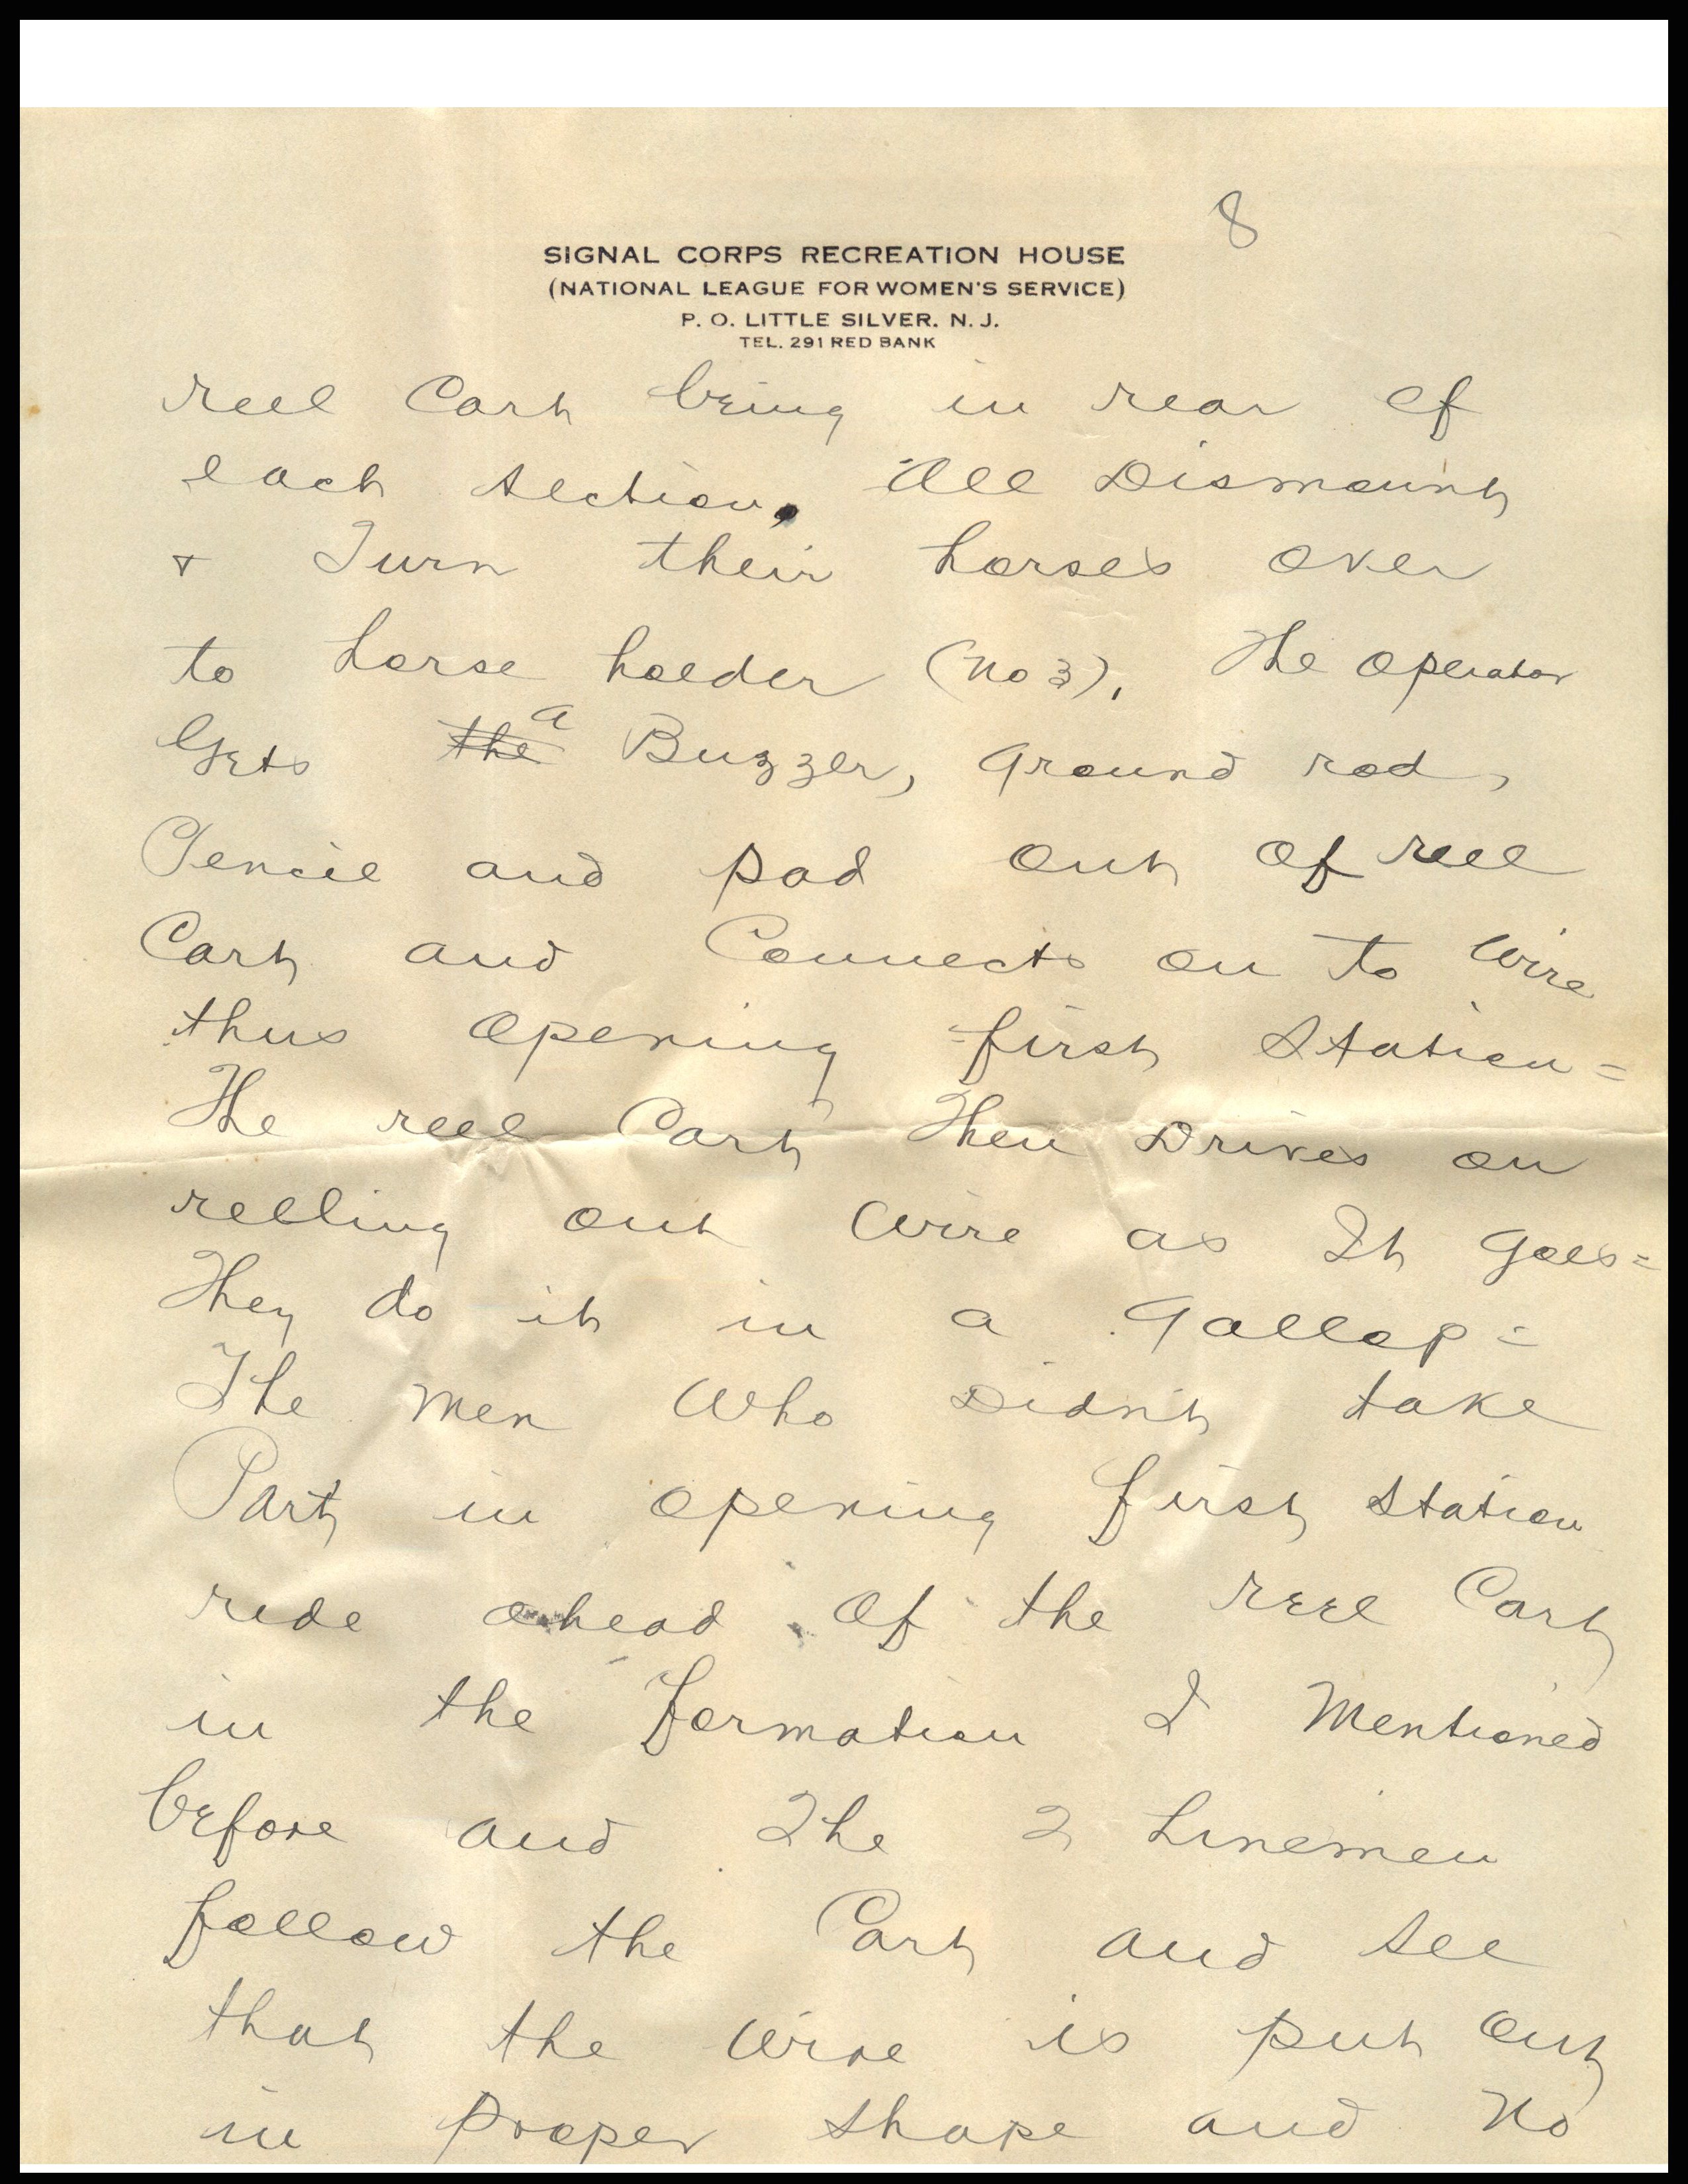 8
SIGNAL CORPS RECREATION HOUSE
(NATIONAL LEAGUE FOR WOMEN'S SERVICE)
P. O. LITTLE SILVER, N. J.
TEL. 291 RED BANK
reel Cart being in rear of
each section, All Dismount
& Turn their horses over
to horse holder (No 3), The operator
Gets the a Buzzer, Ground rod,
Pencil and pad out of reel
Cart and Connects on to Wire
thus opening first Station =
The reel Cart Then Drives on
reeling out Wire as It goes =
They do it in a Gallop =
The men Who Didn't take
Part in opening first station
ride ahead of the reel Cart
in the formation I Mentioned
before and The 2 Linemen
follow the Cart and see
that the Wire is put out
in proper shape and No